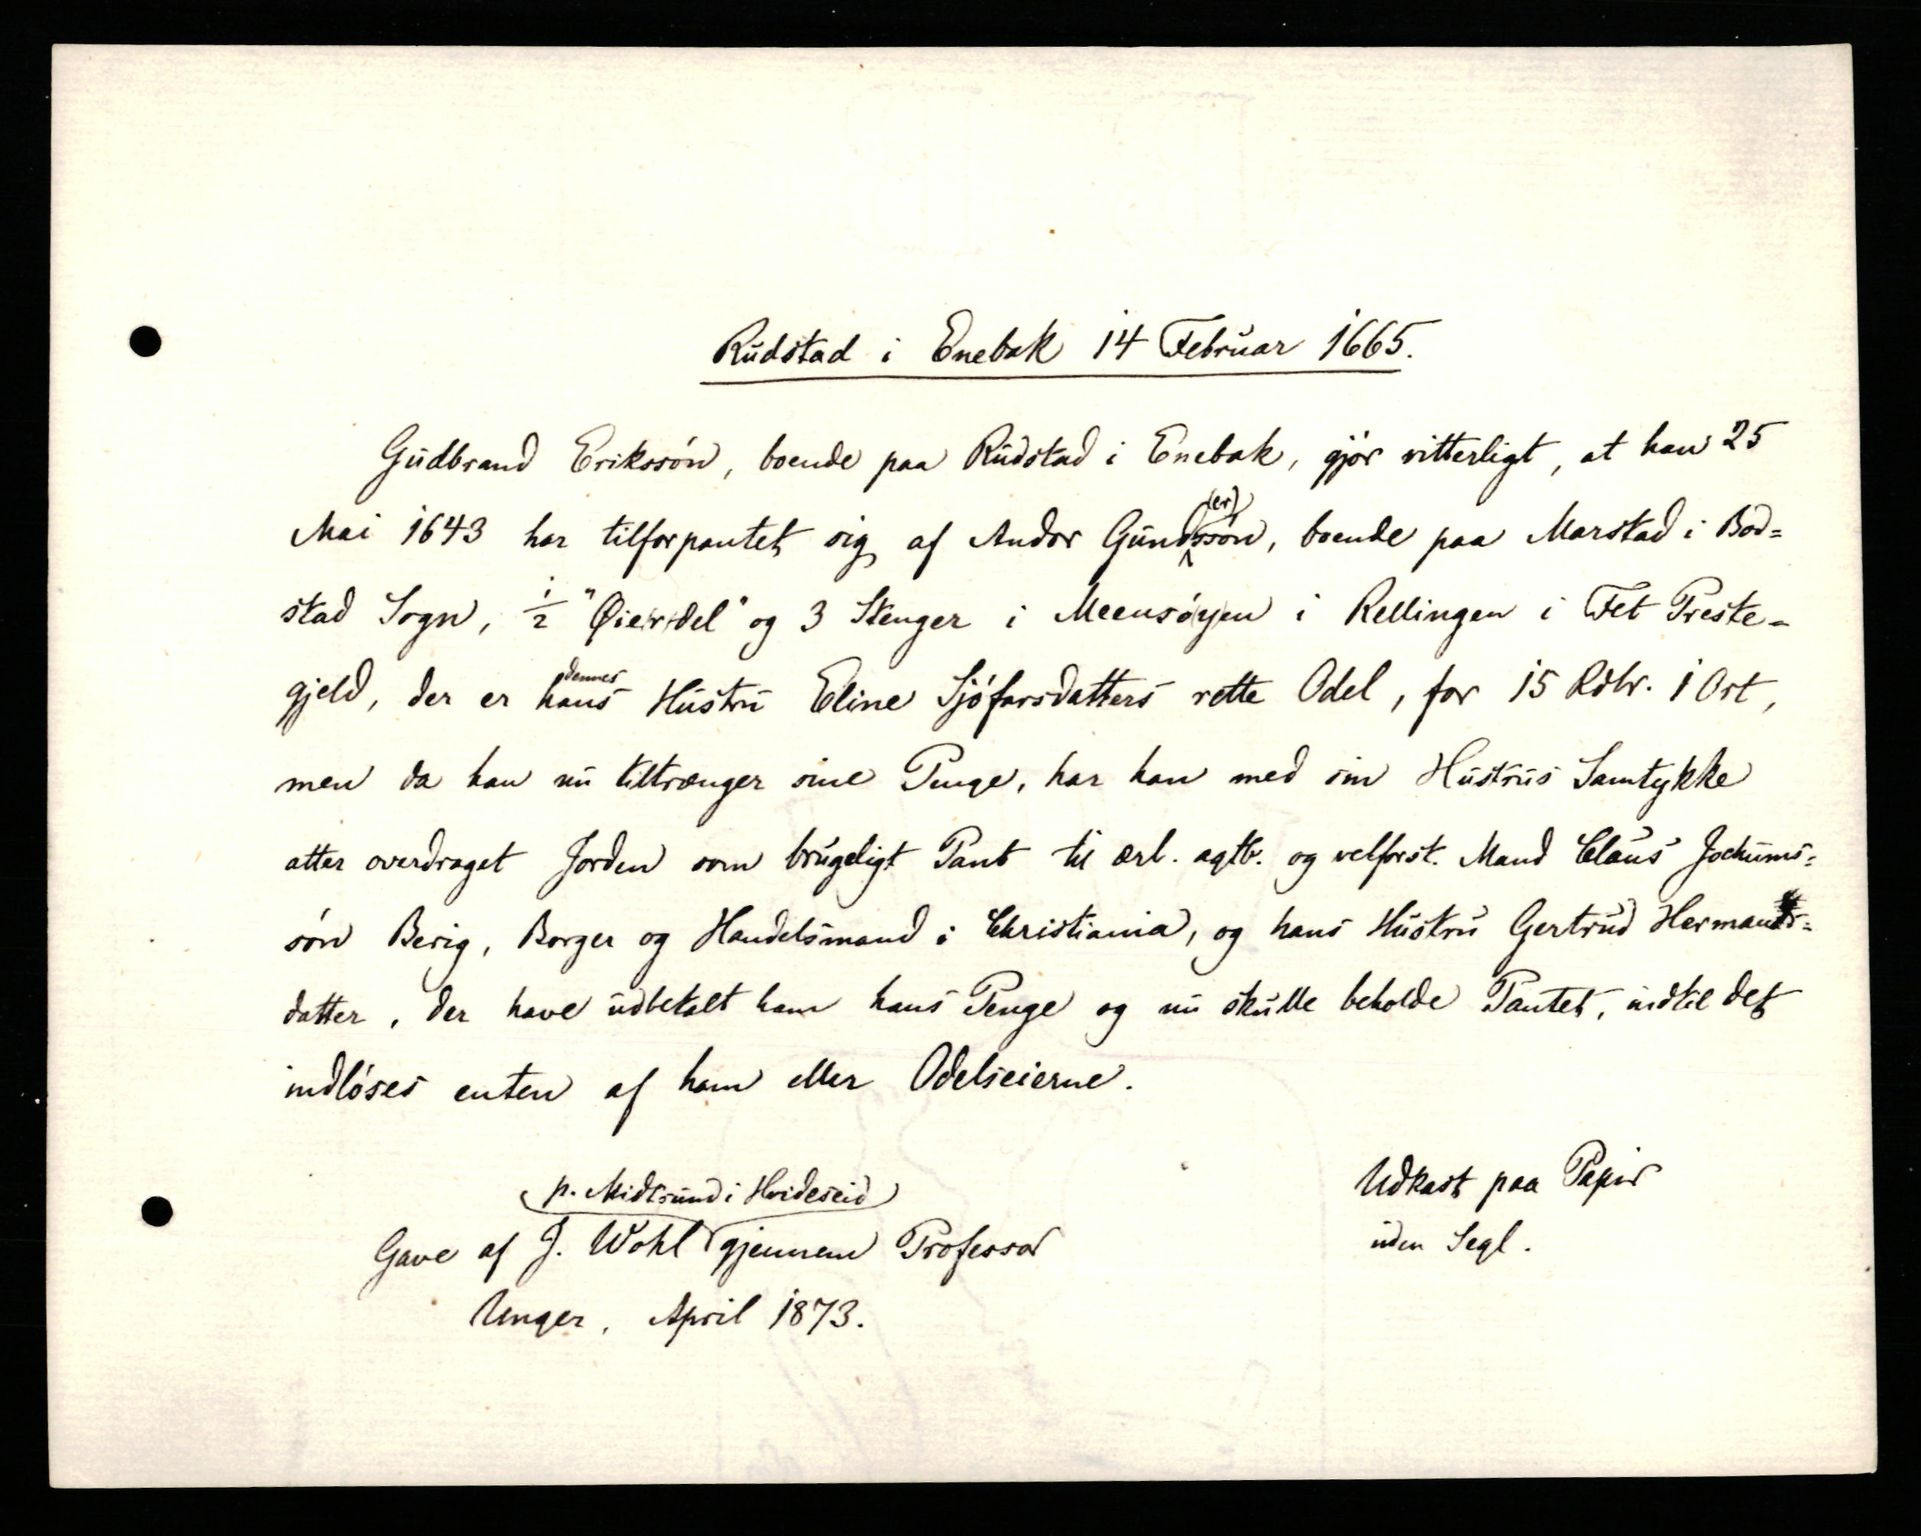 Rudstad i Enebak 14 Februar 1665.
Gudbrand Erikssøn, boende paa Rudstad i Enebak, gjør vitterligt, at han 25
Mai 1643 har tilforpantet sig af Andor Gund(er)ssøn, boende paa Marstad i Bod=
stad Sogn, 1/2 "Øierdel" og 3 Stenger i Meensøyen i Rellingen i Fet Preste=
gjeld, der er dennes hans Hustru Eline Sjøfarsdatters rette Odel, for 15 Rdlr. 1 Ort,
men da han nu tiltrænger sine Penge, har han med sin Hustrus Samtykke
atter overdraget Jorden som brugeligt Pant til ærl. agtb. og velforst. Mand Claus Jochums=
søn Berig, Borger og Handelsmand i Christiania, og hans Hustru Gertrud Hermands=
datter, der have udbetalt ham hans Penge og nu skulle beholde Pantet, indtil det
indløses enten af ham eller Odelseierne.
(p. Midtsund i Hvideseid)
Gave af J. Wohl gjennem Professor
Unger, April 1873.
Udkast paa Papir
uden Segl.